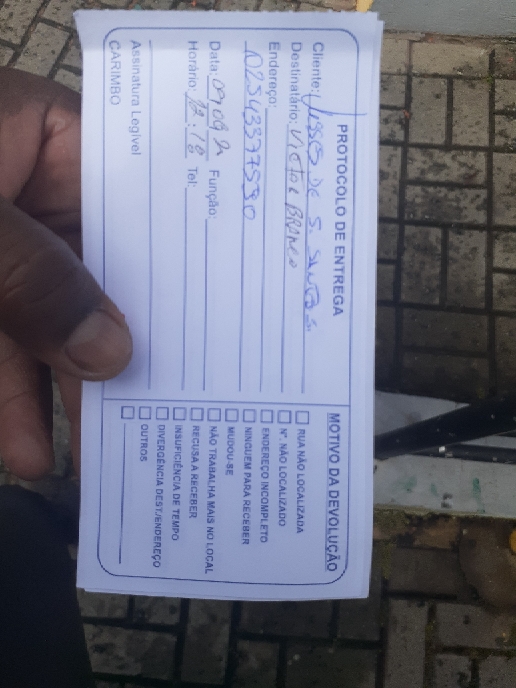 PROTOCOLO DE ENTREGA
Cliente: DE S. SANTOS
Destinatário: VICTOR BRANCO
Endereço:
02543397590
Data: 09 09 Função:
Horário: 12:18 Tel:
Assinatura Legível
CARIMBO
MOTIVO DA DEVOLUÇÃO
RUA NÃO LOCALIZADA
Nº. NÃO LOCALIZADO
ENDEREÇO INCOMPLETO
NINGUEM PARA RECEBER
MUDOU-SE
NÃO TRABALHA MAIS NO LOCAL
RECUSA A RECEBER
INSUFICIÊNCIA DE TEMPO
DIVERGÊNCIA DEST./ENDEREÇO
OUTROS